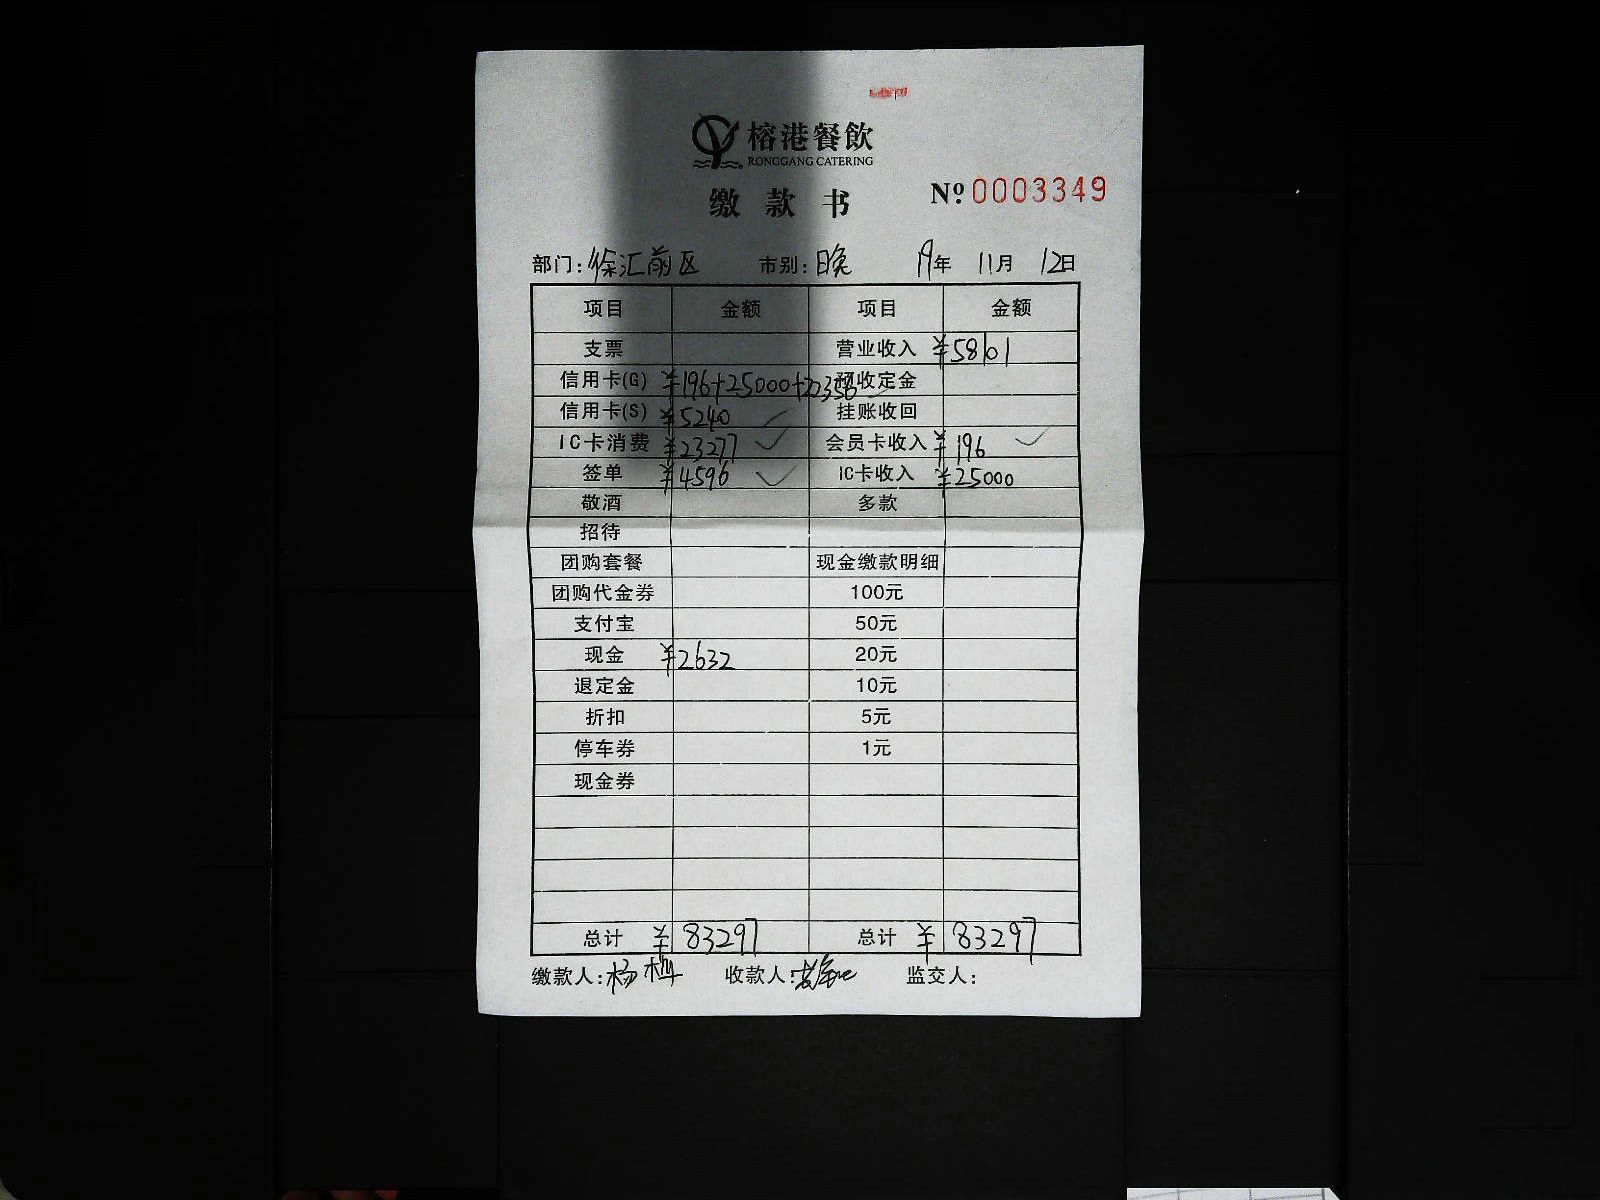 榕港餐飲
RONGGANG CATERING
缴款书 Nº 0003349
部门: 徐汇前区 市别: 晚 19年 11月 12日
项目 金额 项目 金额
支票 营业收入 ¥58101
信用卡(G) ¥196+25000+22356 预收定金
信用卡(S) ¥5240 挂账收回
IC卡消费 ¥23277 会员卡收入 ¥196
签单 ¥4596 IC卡收入 ¥25000
敬酒 多款
招待
团购套餐 现金缴款明细
团购代金券 100元
支付宝 50元
现金 ¥2632 20元
退定金 10元
折扣 5元
停车券 1元
现金券
总计 ¥83297 总计 ¥83297
缴款人: 杨桦 收款人: 监交人: